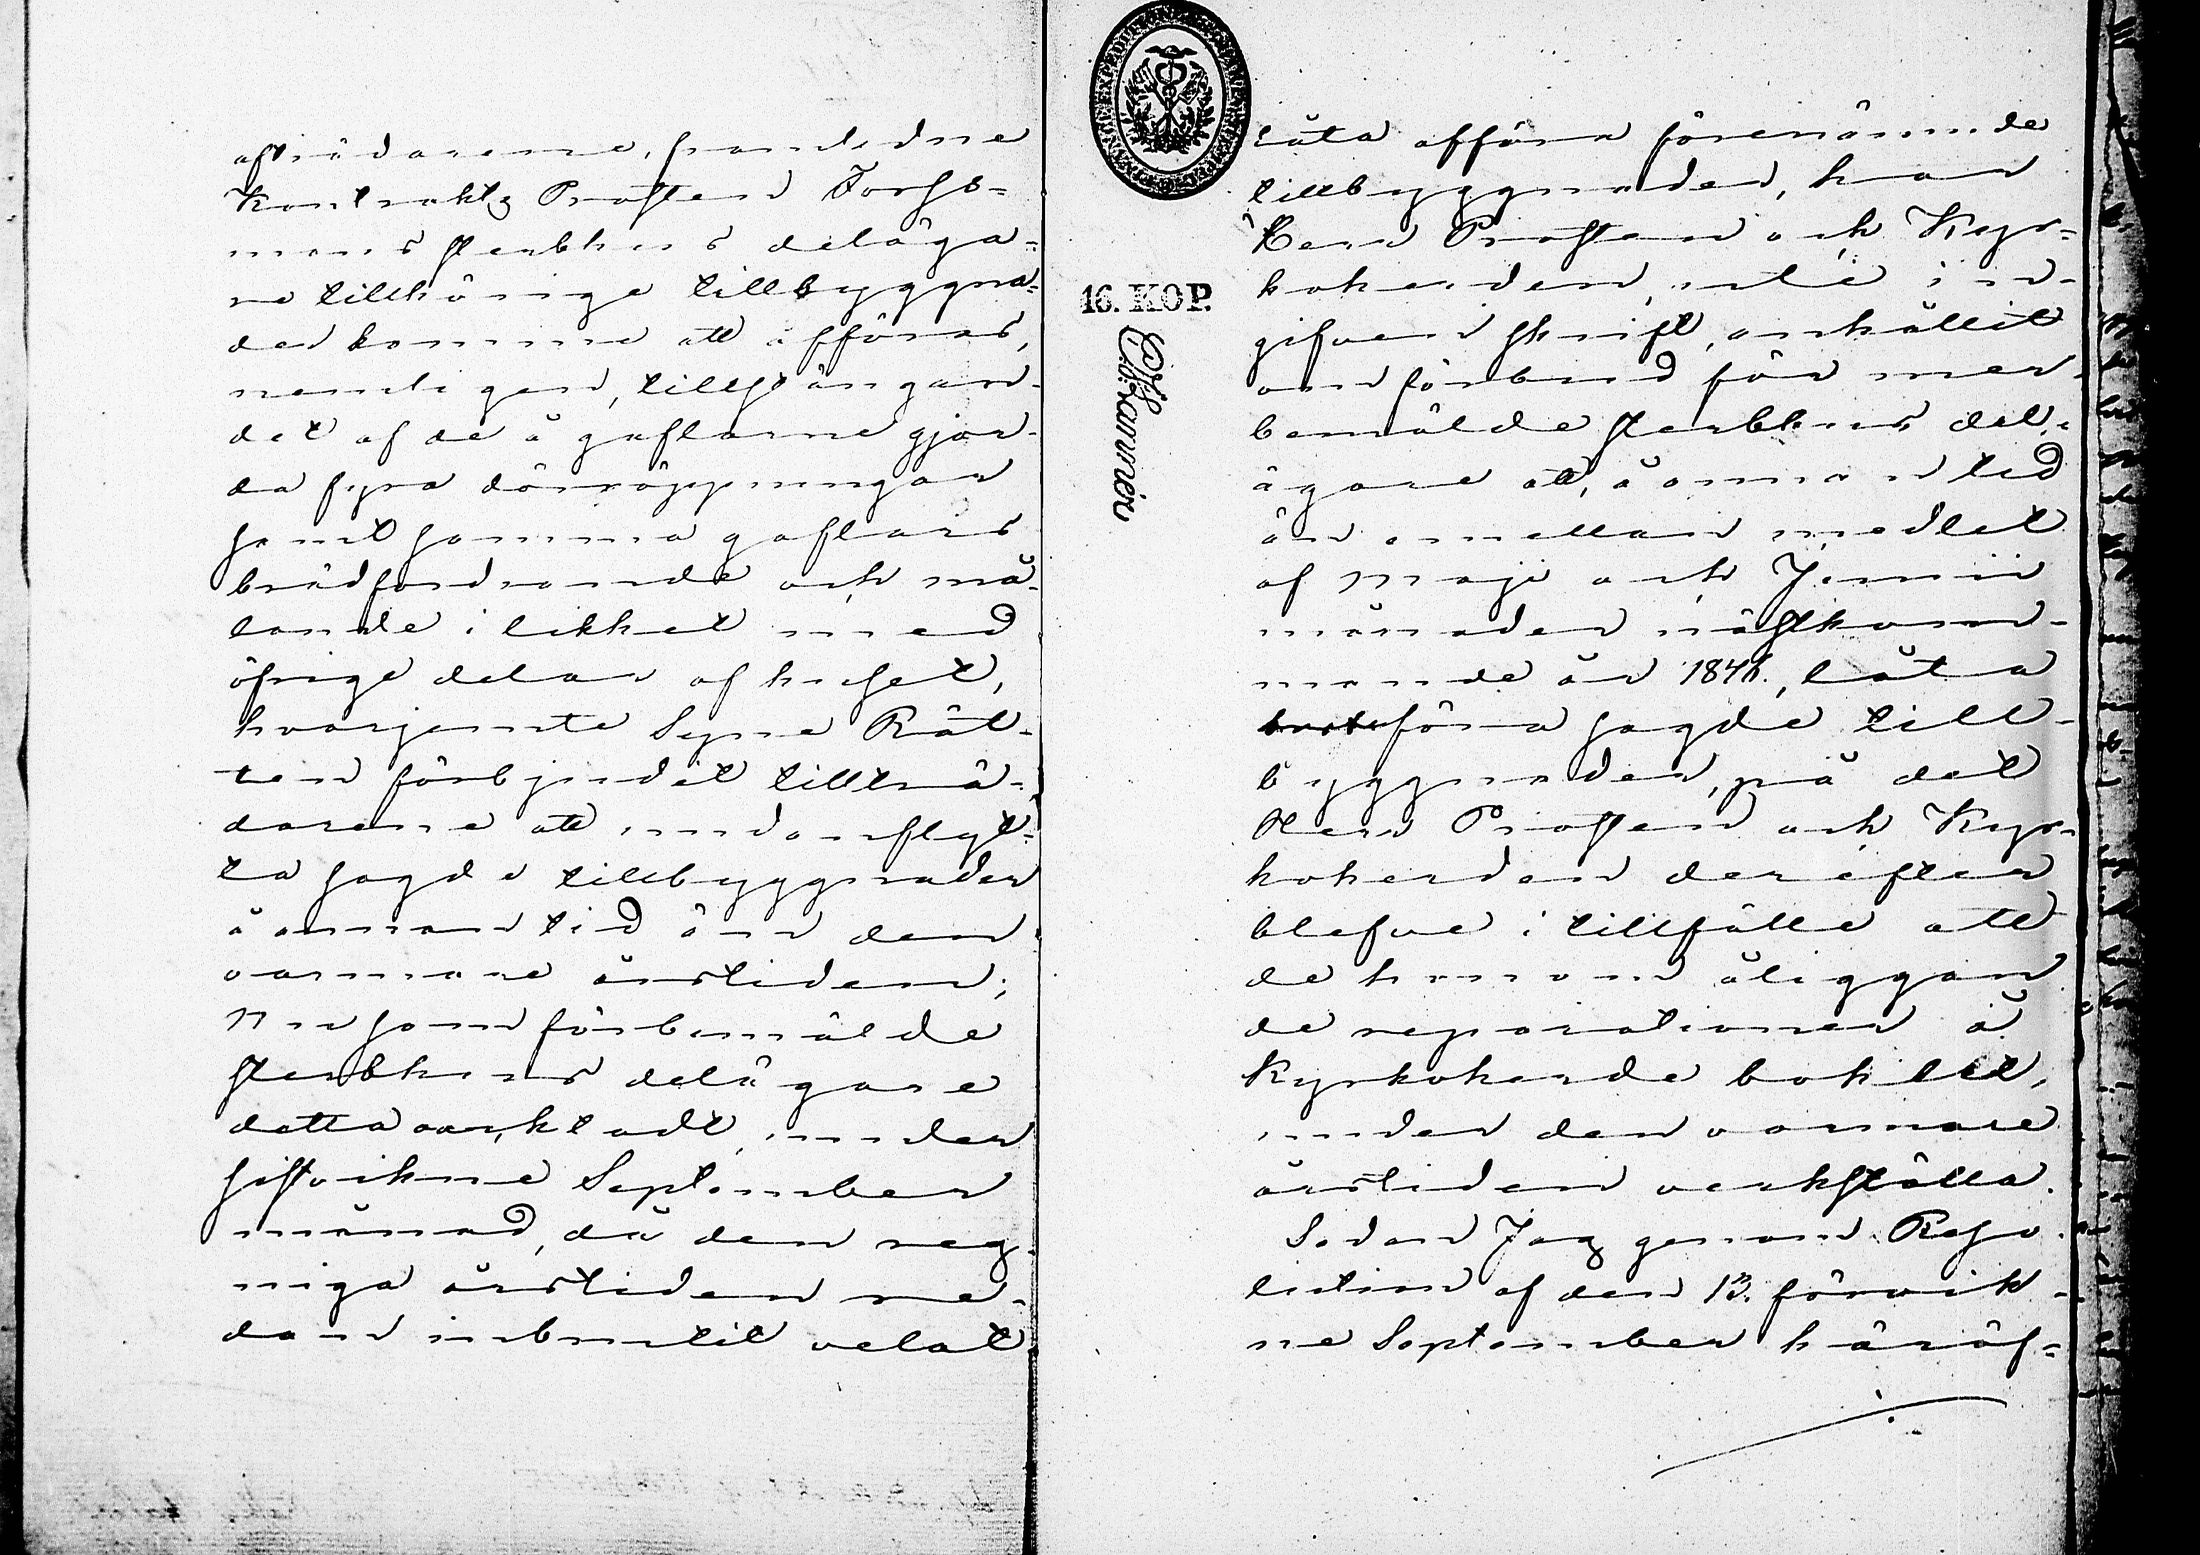 afträdarene, framledne
Kontrakts Prosten Forss-
mans sterbhus deläga-
re tillhörige tillbyggna-
der komme att afföras,
nemligen, tillstängan-
det af de å gaflarne gjor-
da fyra döröppningar
samt samma gaflars
brädfordrande och må-
lande i likhet med
öfrige delar af huset,
hvarjemte Syne Rät-
ten förbjudit tillträ-
darene att undanflyt-
ta sagde tillbyggnader
å annan tid än den
varmare årstiden;
Men som förbemälde
sterbhus delägare
detta oaktadt, under
sistvikne September
månad, då den reg-
niga årstiden re-
dan inbrutit velat
16. KOP.
låta afföra förenämnde
tillbyggnader, har
Herr Prosten och Kyr-
koherden, uti in-
gifven skrift, anhållit
om förbud för mer-
bemälde sterbhus del-
ägare att, å annan tid
än emellan medlet
af Maji och Junii
månader nästkom-
mande år 1846, låta
bortföra sagde till-
byggnader, på det
Herr Prosten och Kyr-
koherden derefter
blefve i tillfälle att
de honom åliggan
de reparationer å
Kyrkoherde bohlet,
under den varmare
årstiden verkställa.
Sedan Jag genom Reso-
lution af den 13. förvik-
ne September häröf-